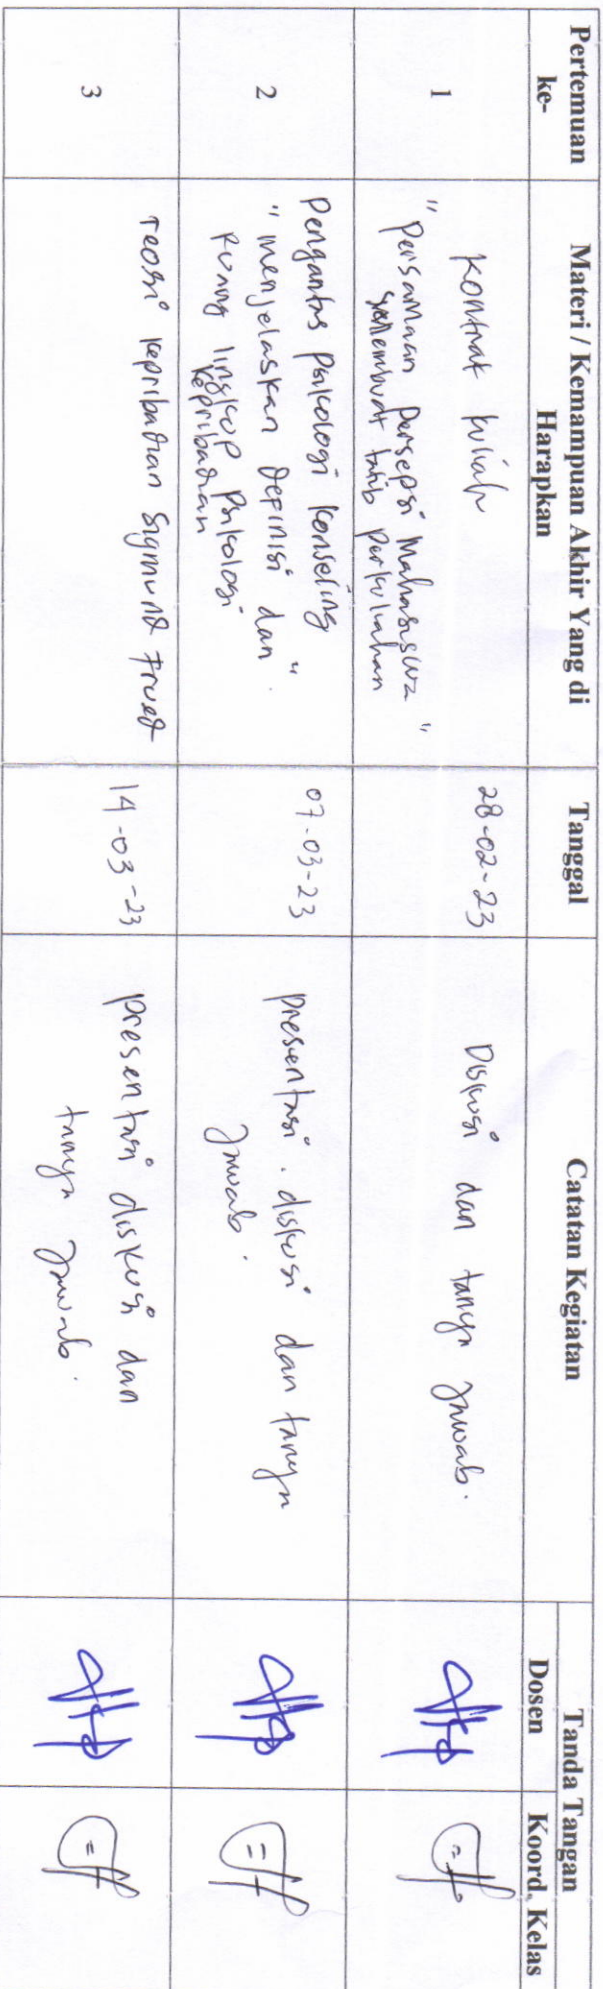 Pertemuan
ke-
Materi / Kemampuan Akhir Yang di
Harapkan
Tanggal
Catatan Kegiatan
Tanda Tangan
Dosen
Koord. Kelas
1
Kontrak kuliah
" Persamaan Persepsi Mahasiswa "
tatib perkuliahan
28-02-23
Diskusi dan tanya Jawab.
2
Pengantar Psikologi Konseling
" menjelaskan Definisi dan "
Ruang lingkup Psikologi
Kepribadian
07-03-23
presentasi. diskusi dan tanya
Jawab.
3
Teori Kepribadian Sigmund Frued
14-03-23
presentasi diskusi dan
tanya Jawab.